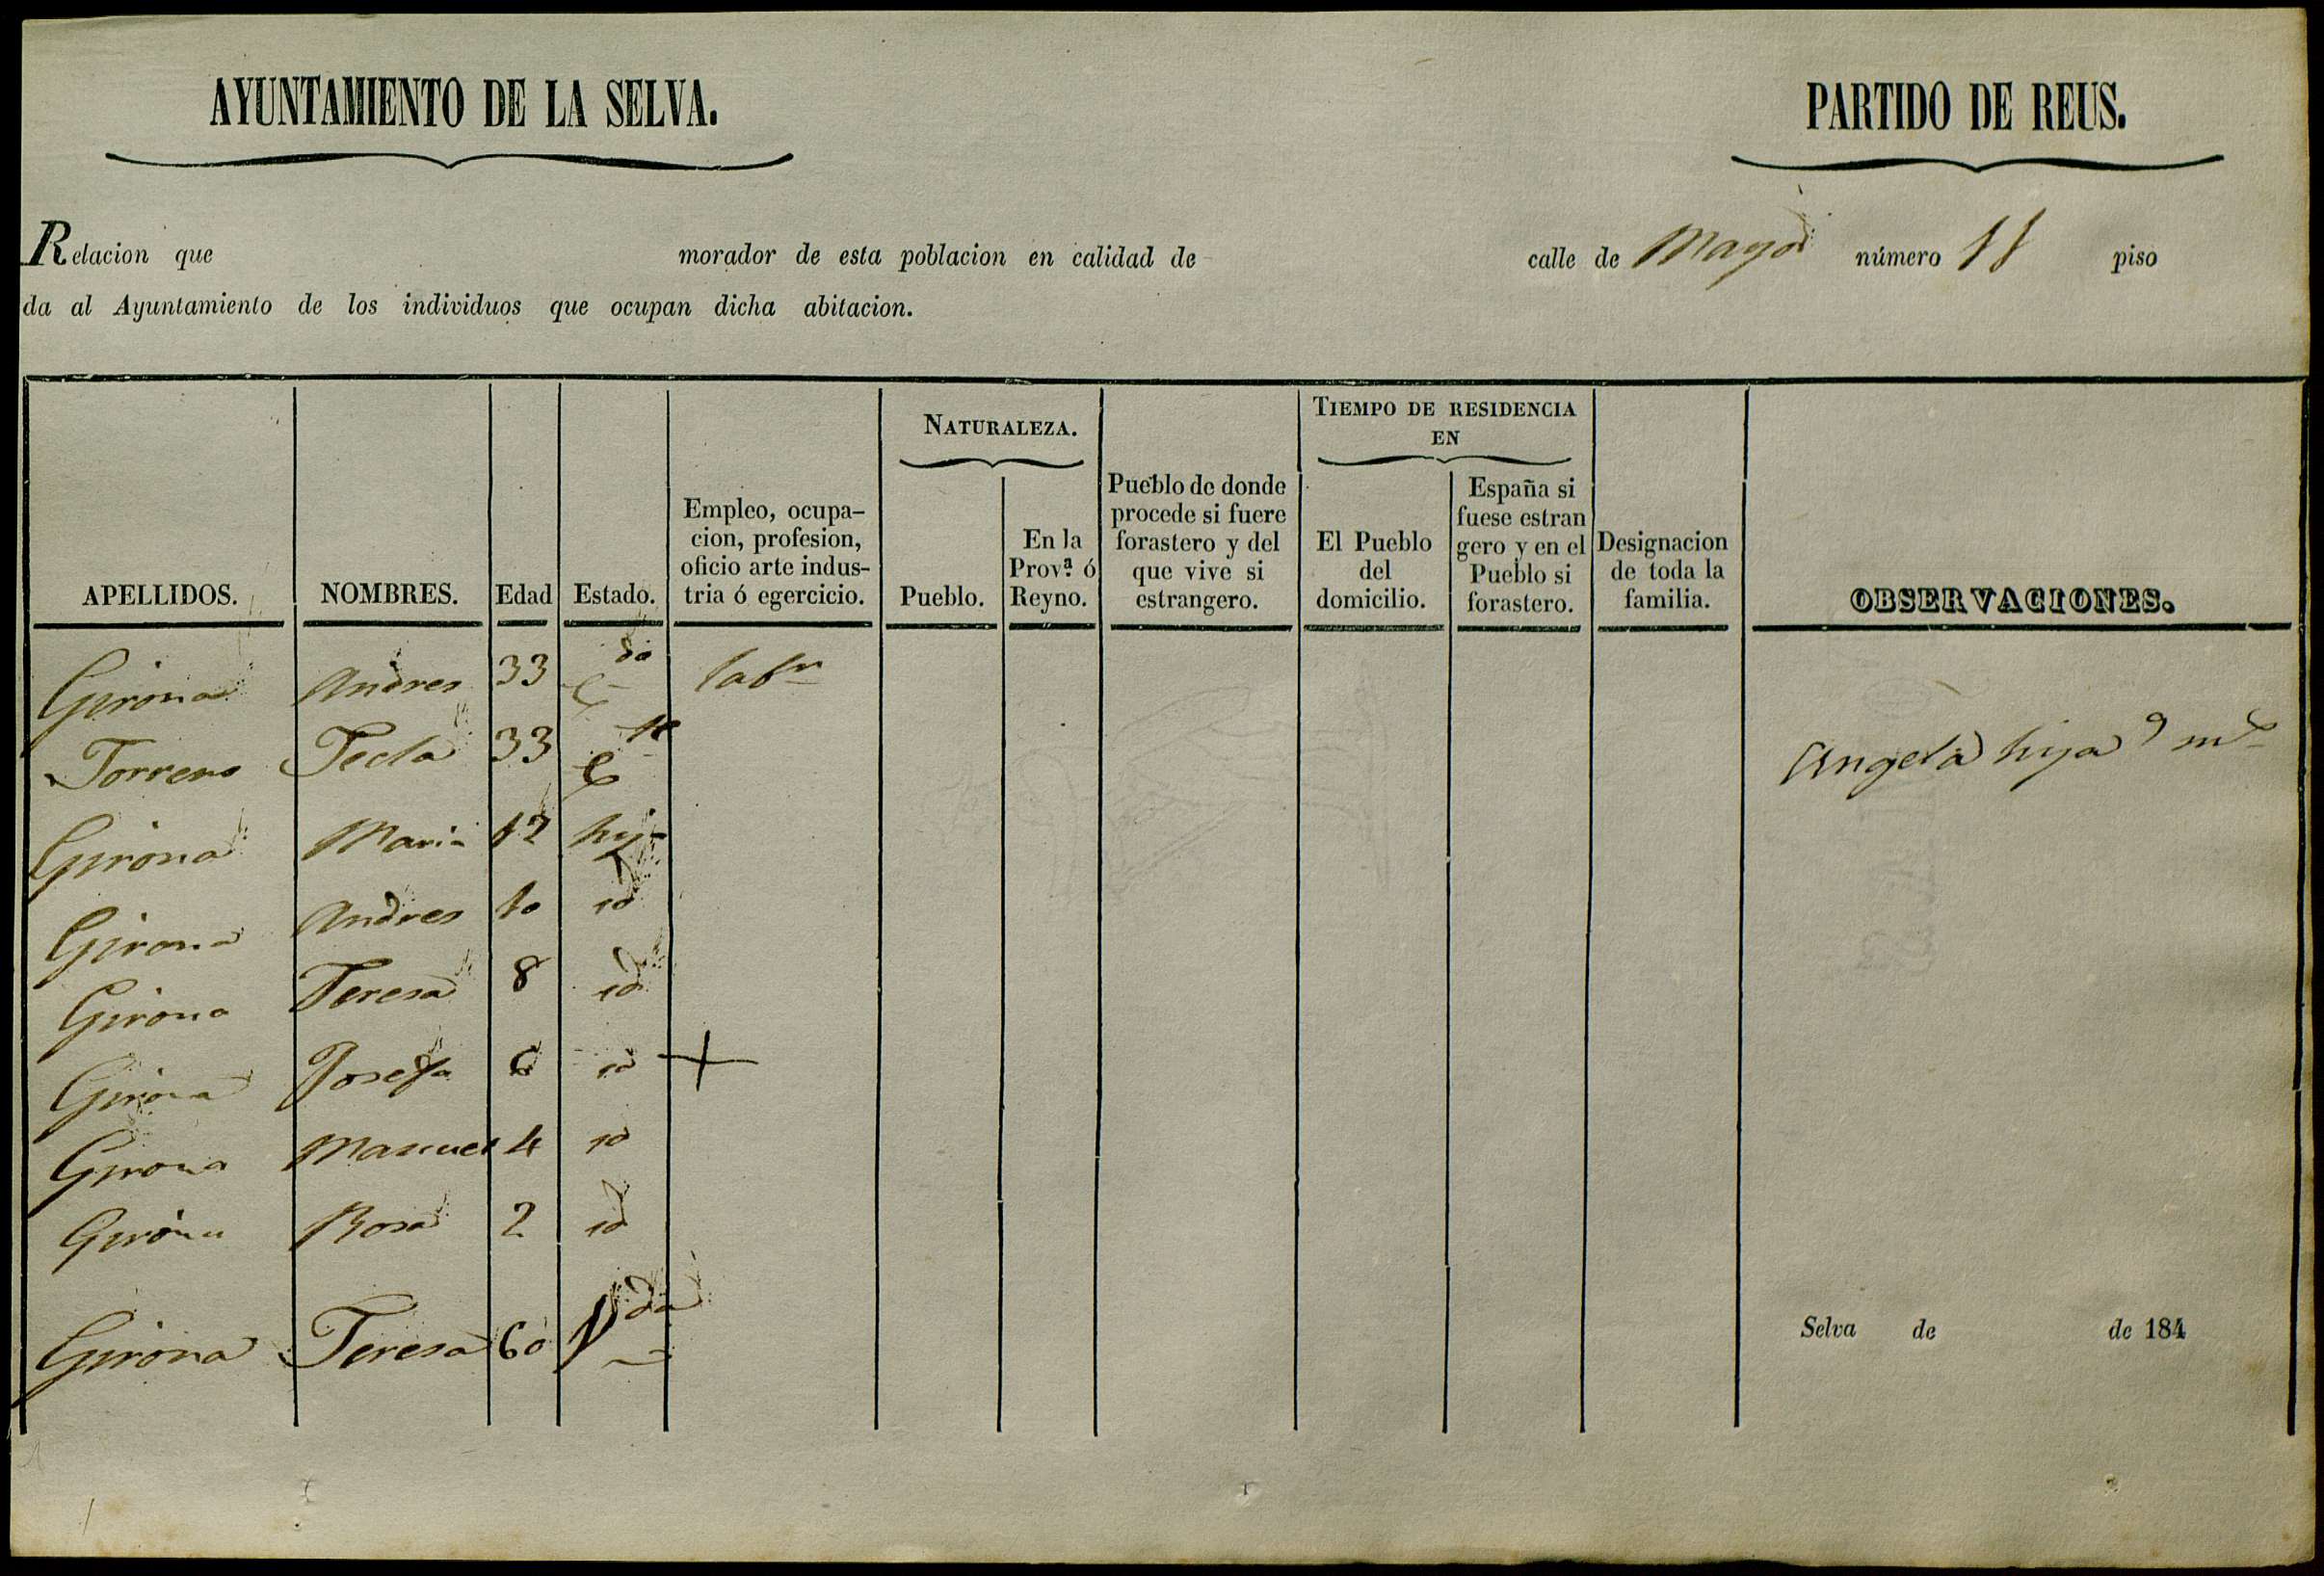 AYUNTAMIENTO DE LA SELVA.
PARTIDO DE REUS.
Relacion que morador de esta poblacion en calidad de calle de Mayor número 11 piso
da al Ayuntamiento de los individuos que ocupan dicha abitacion.
APELLIDOS.
NOMBRES.
Edad
Estado.
Empleo, ocupa-
cion, profesion,
oficio arte indus-
tria ó egercicio.
NATURALEZA.
Pueblo.
En la
Prov.ª ó
Reyno.
Pueblo de donde
procede si fuere
forastero y del
que vive si
estrangero.
TIEMPO DE RESIDENCIA
EN
El Pueblo
del
domicilio.
España si
fuese estran
gero y en el
Pueblo si
forastero.
Designacion
de toda la
familia.
OBSERVACIONES.
Girona Andres 33 C.do labr
Torrens Tecla 33 Angela hija
Girona Maria 12 hij
Girona Andres 10 id
Girona Teresa 8 id
Girona Josefa 6 id +
Girona Manuel 4 id
Girona Rosa 2 id
Girona Teresa 60 Vda
Selva de de 184